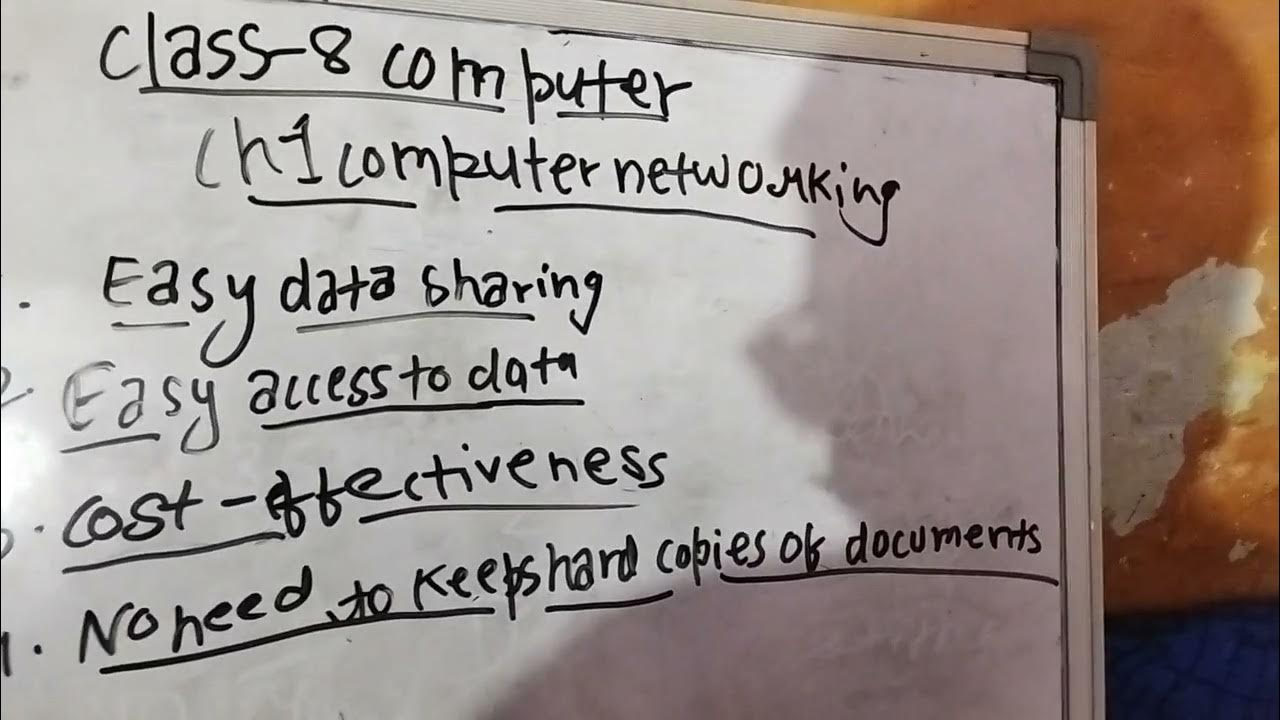 Class-8 computer
Ch1 computer networking
. Easy data sharing
2. Easy access to data
. Cost-effectiveness
. No need to keeps hard copies of documents